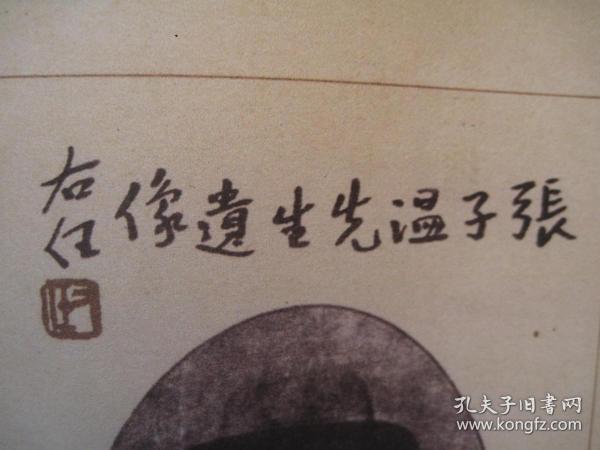 張子温先生遺像
右任
孔夫子旧書网
www.kongfz.com